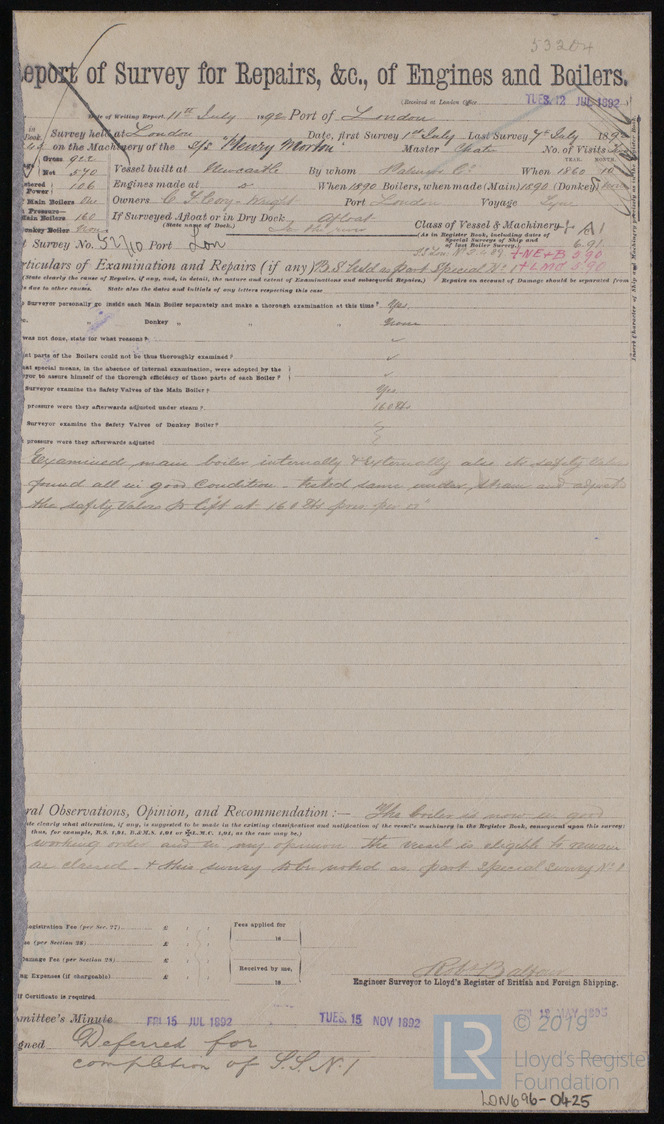 53204
eport of Survey for Repairs, &c., of Engines and Boilers.
(Received at London Office TUES. 12 JUL 1892
Date of Writing Report 11th July 1892 Port of London
Survey held at London Date, first Survey 1st July Last Survey 7th July 189
on the Machinery of the s/s "Henry Morton" Master No. of Visits
Gross 922
Net 590
Vessel built at Newcastle By whom Palmers Co When 1860 10
YEAR. MONTH.
Power 106
Engines made at When 1890 Boilers, when made (Main) 1890 (Donkey)
Main Boilers One
Owners Port London Voyage Tyne
Pressure—
ain Boilers 160
If Surveyed Afloat or in Dry Dock Afloat
(State name of Dock.)
Donkey Boiler None
Class of Vessel & Machinery
(As in Register Book, including dates of Special Surveys of Ship and of last Boiler Survey.)
A1
6.91
+NE+B 5.90
+LMC 5.90
t Survey No. 52710 Port Lon
Insert Character of Ship and Machinery precisely as in the Register Book
rticulars of Examination and Repairs (if any) B.S. held as part Special No. 1
(State clearly the cause of Repairs, if any, and, in detail, the nature and extent of Examinations and subsequent Repairs.) Repairs on account of Damage should be separated from
e due to other causes. State also the dates and initials of any letters respecting this case
Surveyor personally go inside each Main Boiler separately and make a thorough examination at this time? Yes
Donkey " " " None
was not done, state for what reasons?
at parts of the Boilers could not be thus thoroughly examined?
at special means, in the absence of internal examination, were adopted by the
yor to assure himself of the thorough efficiency of those parts of each Boiler?
Surveyor examine the Safety Valves of the Main Boiler? Yes
pressure were they afterwards adjusted under steam? 160 lbs
Surveyor examine the Safety Valves of Donkey Boiler?
pressure were they afterwards adjusted
Examined main boiler internally & Externally also its safety Valves
found all in good Condition - tested same under steam and adjusted
the safety Valves to lift at 160 lbs pres per □"
ral Observations, Opinion, and Recommendation :— The boiler is now in good
te clearly what alteration, if any, is suggested to be made in the existing classification and notification of the vessel's machinery in the Register Book, consequent upon this survey;
thus, for example, B.S. 1,91, B.&M.S. 1,91 or ✠L.M.C. 1,91, as the case may be.)
working order and in my opinion the vessel is eligible to remain
as classed. & this survey to be noted as part Special Survey No 1
egistration Fee (per Sec. 27) £ : :
ee (per Section 28) £ : :
Damage Fee (per Section 28) £ : :
ng Expenses (if chargeable) £ : :
Fees applied for
18
Received by me,
18
Engineer Surveyor to Lloyd's Register of British and Foreign Shipping.
If Certificate is required
mmittee's Minute FRI 15 JUL 1892 TUES. 15 NOV 1892
gned Deferred for
completion of S.S. N. 1
LR © 2019
Lloyd's Registe
Foundation
LON696-0425